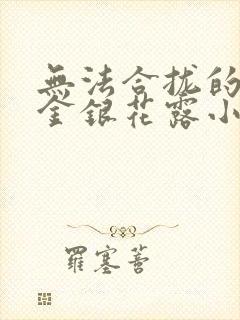 無法合拢的
金銀花露小
羅塞菩